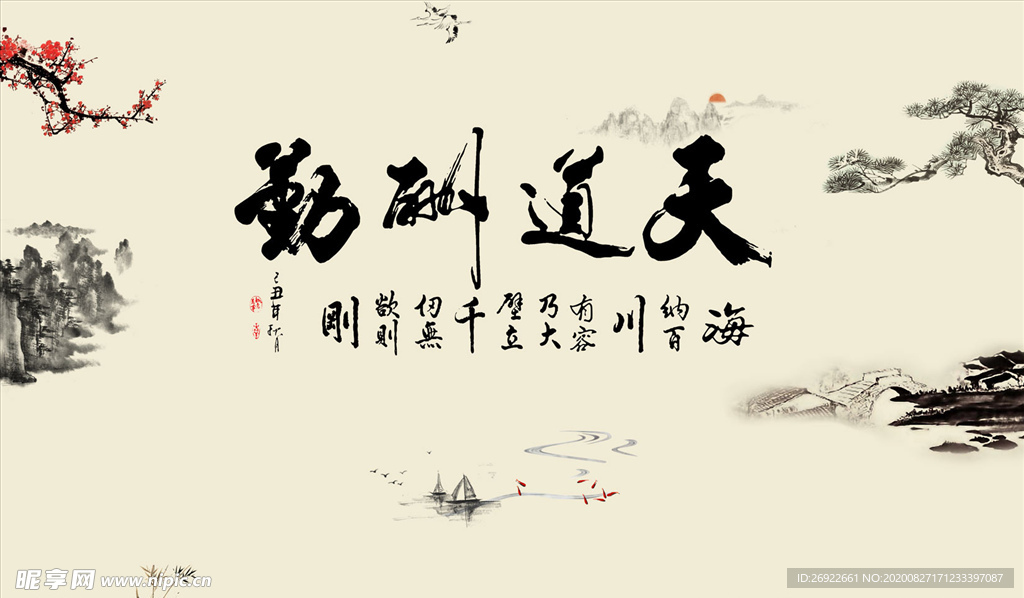 天道酬勤
海納百川有容乃大壁立千仞無欲則剛
己丑年秋月
昵享网 www.nipic.cn
ID:26922661 NO:20200827171233397087